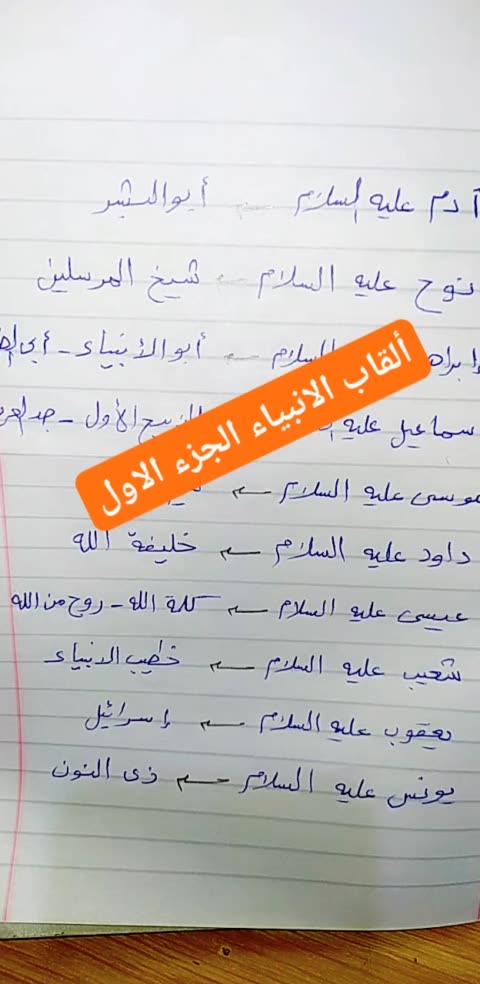 آدم عليه السلام ← أبو البشر
نوح عليه السلام ← شيخ المرسلين
السلام ← أبو الأنبياء -
سماعيل عليه الأول -
موسى عليه السلام ←
داود عليه السلام ← خليفة الله
عيسى عليه السلام ← كلمة الله - روح من الله
شعيب عليه السلام ← خطيب الانبياء
يعقوب عليه السلام ← إسرائيل
يونس عليه السلام ← ذى النون
ألقاب الانبياء الجزء الاول